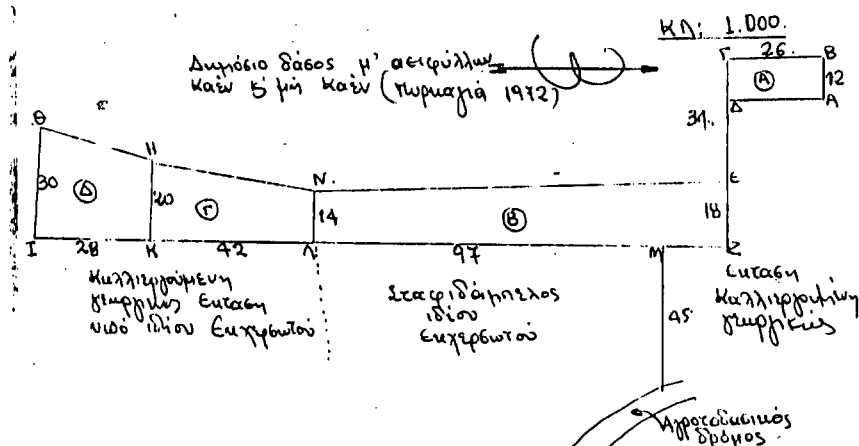 ΚΛ: 1.000.
Δημόσιο δάσος μ' αειφύλλων
καέν ή μή καέν (πυρκαγιά 1972)
Γ 26. Β
Α 12
Δ Α
34.
Θ
Η
30 Δ 20 Γ
Ν. Ε
14 Β 18
Ι 28 Κ 42 Λ 97 Μ Ζ
Καλλιεργούμενη
γεωργικώς Έκταση
υπό ιδίου Εκχερσωτού
Σταφιδάμπελος
ιδίου
Εκχερσωτού
45
Έκταση
Καλλιεργουμένη
γεωργικώς
Αγροτοδασικός
δρόμος